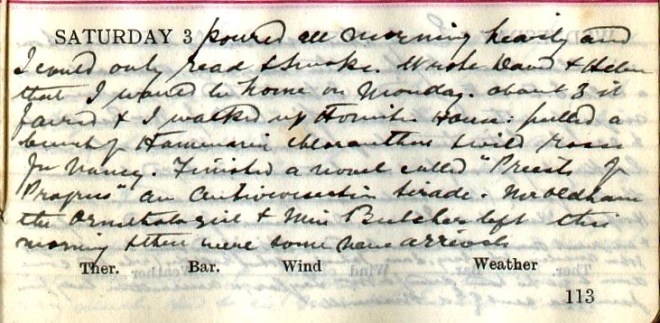 SATURDAY 3 poured all morning heavily and
I could only read & smoke. Wrote David & Helen
that I would be home on Monday. about 3 it
faired & I walked up House: pulled a
bunch of & wild roses
for Nancy. Finished a novel called "Priests of
Progress" an Antivivisection tirade. Mr Oldham
the Ornithologist & Miss Butcher left this
morning & there were some new arrivals
Ther. Bar. Wind Weather
113